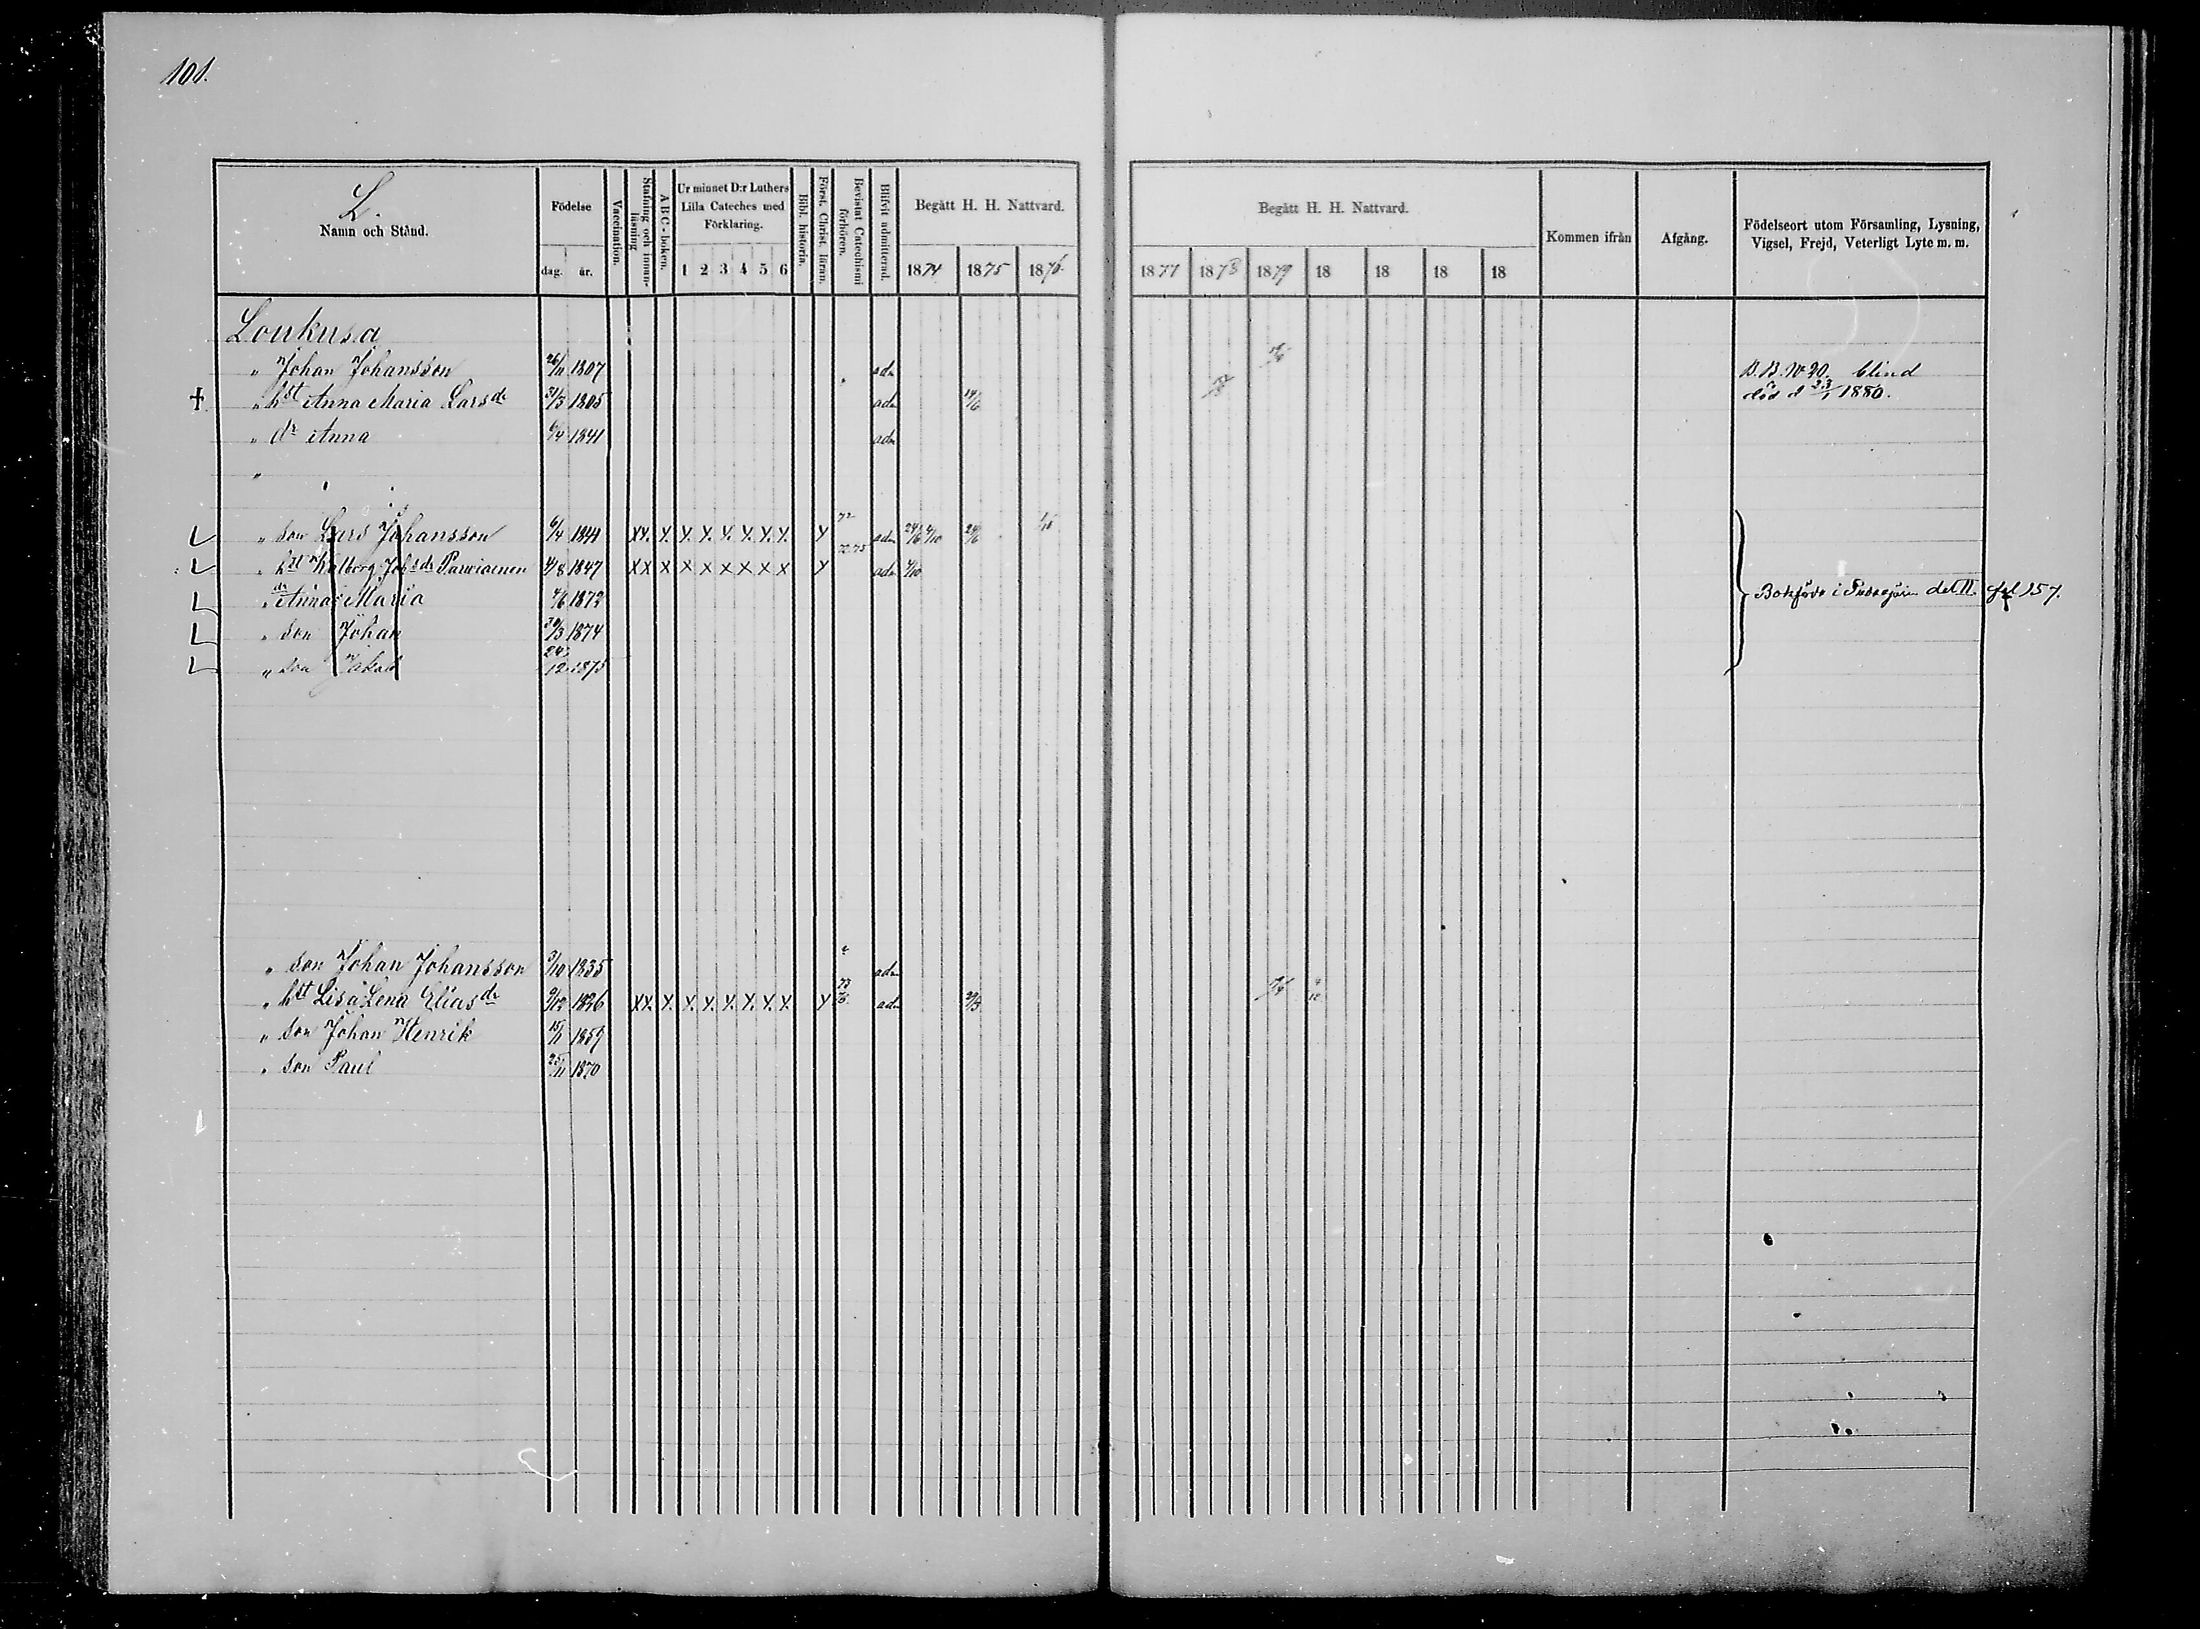 101.
L.
Namn och Stånd.
Födelse
dag. år.
Vaccination.
Stafning och innanläsning
ABC-boken.
Ur minnet D:r Luthers Lilla Cateches med Förklaring.
1 2 3 4 5 6
Bibl. historia.
Först. Christ. läran.
Bevistat Catechismi förhören.
Blifvit admitterad.
Begått H. H. Nattvard.
1874 1875 1876.
Begått H. H. Nattvard.
1877 1878 1879 18 18 18 18
Kommen ifrån
Afgång.
Födelseort utom Församling, Lysning, Vigsel, Frejd, Veterligt Lyte m. m.
Loukusa
„ Johan Johansson 26/11 1807 adm B. B. No 20. blind
+ „ hst Anna Maria Larsdr 31/3 1805 adm 14/6 död d 23/1 1880.
„ dr Anna 6/4 1841 adm
„
„ son Lars Johansson 6/4 1841 XX. X. X. X. X. X. X. X. X 72 adm 24/6 4/10 24/6
„ hst Walborg Johsdr Parviainen 4/8 1847 XX X X X X X X X X 72.75 adm 4/10
„ dr Anna Maria 4/6 1872 Bokförd i det II fol 157.
„ son Johan 30/3 1874
„ son Jakob 24/12 1875
„ son Johan Johansson 3/10 1835 adm
„ hst Lisa Lena Eliasdr 9/12 1826 XX. X. X. X. X. X. X. X. X adm 29/3
„ son Johan Henrik 15/11 1859
„ son Paul 25/11 1870